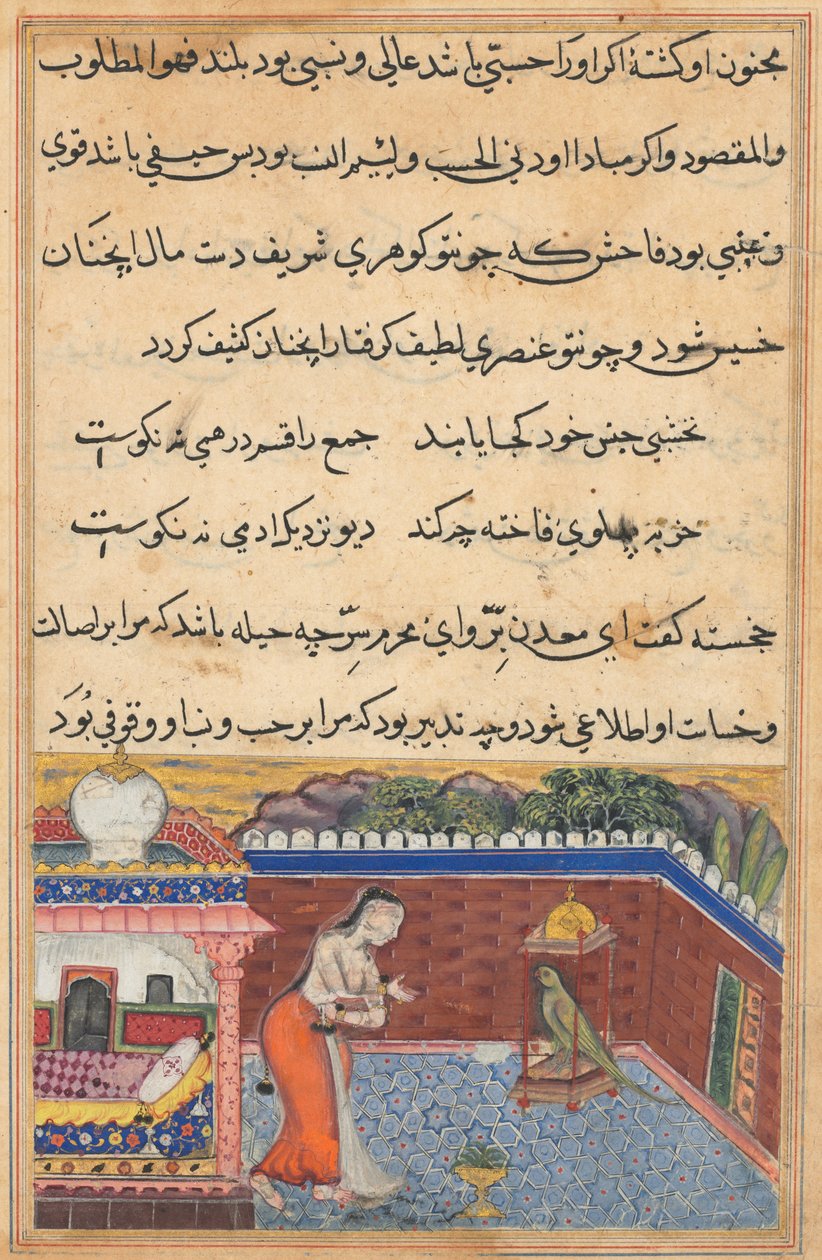 مجنون او کشتهٔ اکر اورا حسبی باشد عالی و نسبی بود بلند فهوالمطلوب
والمقصود واکر مبادا او دنی الحسب و لئیم النسب بود بس حیفی باشد قوی
و عیبی بود فاحش که چونتو کوهری شریف دست مال اینچنان
خسیس شود و چونتو عنصری لطیف کرفتار اینچنان کثیف کردد
نخشبی جنس خود کجا یابند جمع را قسم درهمی نه نکوست
خر به پهلوی فاخته چه کند دیو نزدیک ادمی نه نکوست
خجسته کفت ای معدن بِرّ وای محرم سِرّ چه حیله باشد که مرا بر اصالت
و خساست او اطلاعی شود و چه تدبیر بود که مرا بر حسب و نسب او وقوفی بُوَد